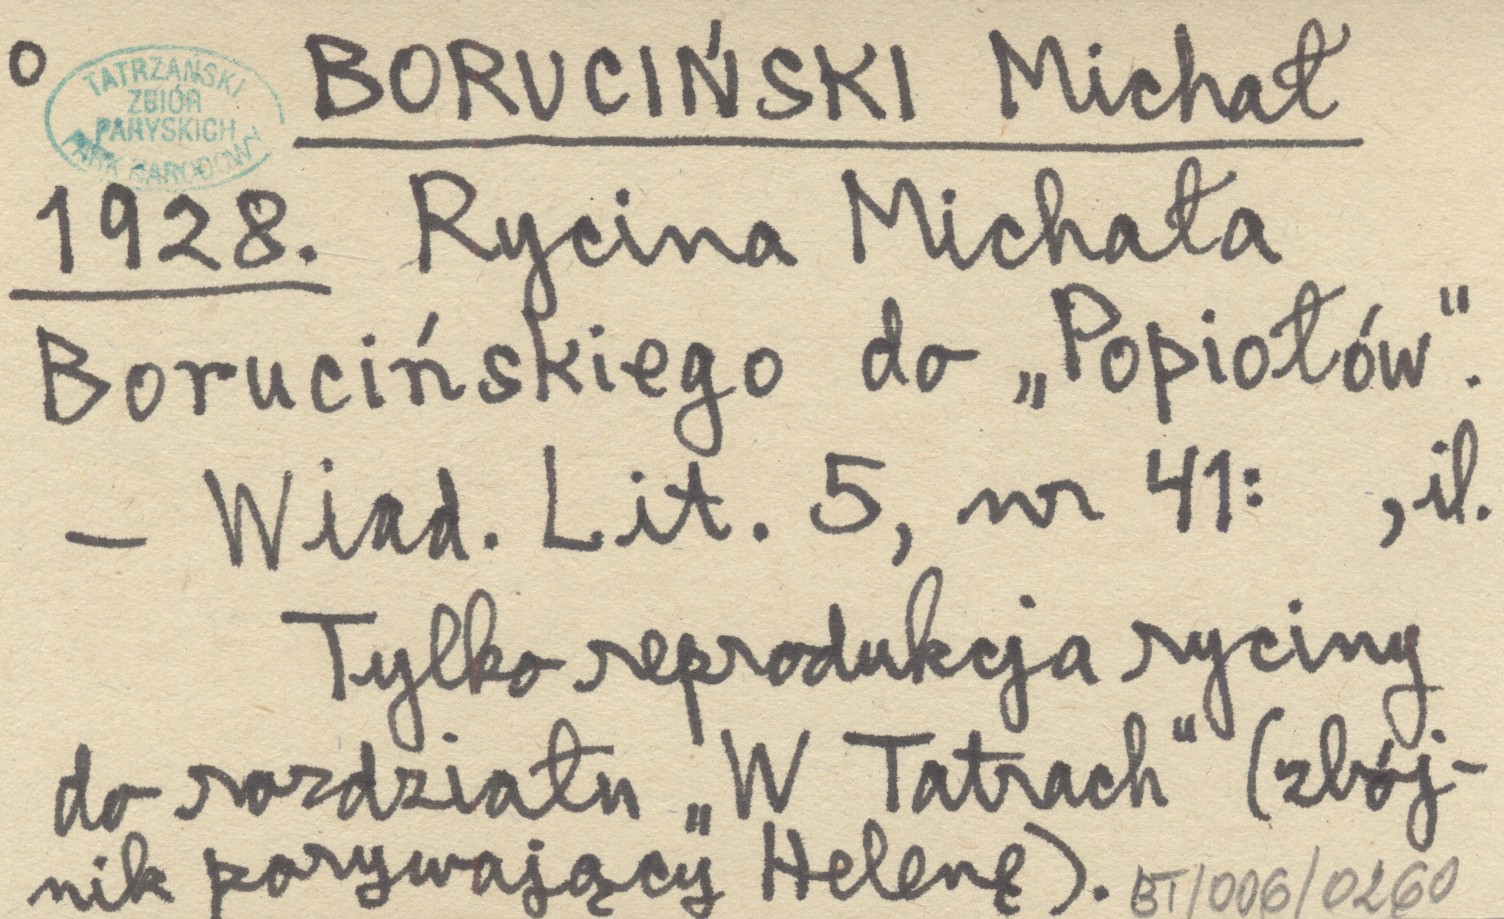 o BORUCIŃSKI Michał
TATRZAŃSKI
ZBIÓR
PARYSKICH
PARK NARODOWY
1928. Rycina Michała
Borucińskiego do „Popiołów".
— Wiad. Lit. 5, nr 41: , il.
Tylko reprodukcja ryciny
do rozdziału „W Tatrach" (zbój-
nik porywający Helenę).
BT/006/0260